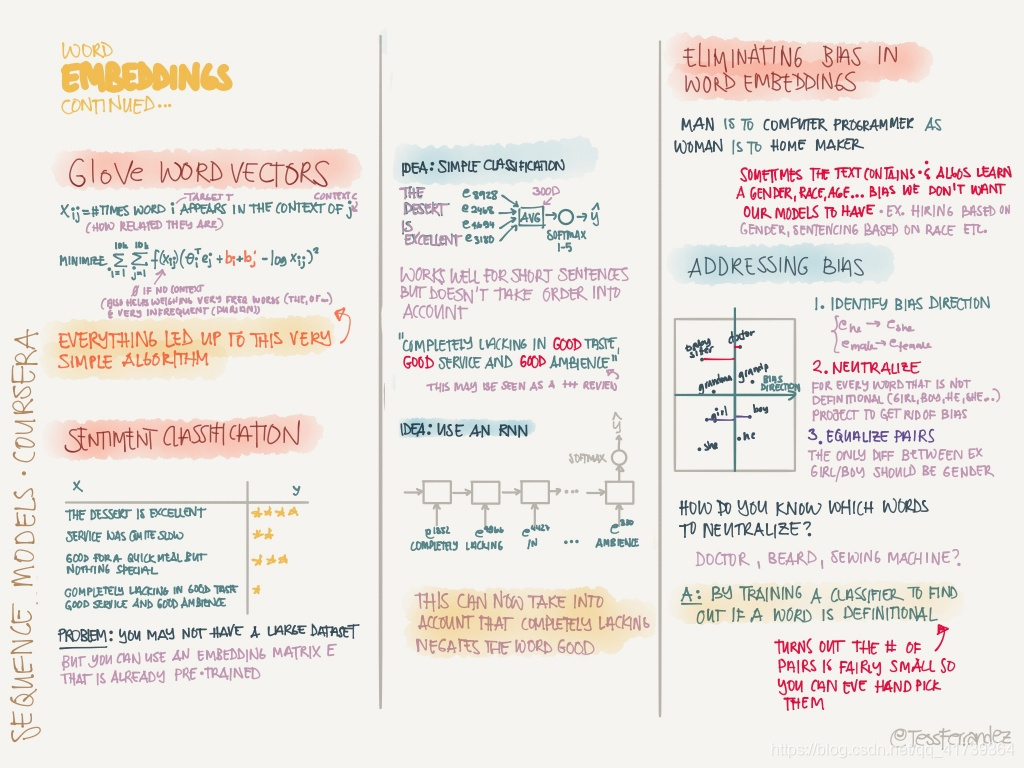 WORD
EMBEDDINGS
CONTINUED...
GloVe WORD VECTORS
TARGET T
CONTEXT C
Xij = #TIMES WORD i APPEARS IN THE CONTEXT OF j
(HOW RELATED THEY ARE)
MINIMIZE 10k Σ i=1 10k Σ j=1 f(Xij)(θiᵀej + bi + b'j - log Xij)²
Ø IF NO CONTEXT
(ALSO HELPS WEIGHING VERY FREQ WORDS (THE, OF...)
& VERY INFREQUENT (DURIAN))
EVERYTHING LED UP TO THIS VERY
SIMPLE ALGORITHM
SENTIMENT CLASSIFICATION
X Y
THE DESSERT IS EXCELLENT ★★★★
SERVICE WAS QUITE SLOW ★★
GOOD FOR A QUICK MEAL BUT ★★★
NOTHING SPECIAL
COMPLETELY LACKING IN GOOD TASTE ★
GOOD SERVICE AND GOOD AMBIENCE
PROBLEM: YOU MAY NOT HAVE A LARGE DATASET
BUT YOU CAN USE AN EMBEDDING MATRIX E
THAT IS ALREADY PRE-TRAINED
SEQUENCE MODELS · COURSERA
IDEA: SIMPLE CLASSIFICATION
THE e8928 300D
DESERT e2468
AVG ŷ
IS e4694
EXCELLENT e3180
SOFTMAX
1-5
WORKS WELL FOR SHORT SENTENCES
BUT DOESN'T TAKE ORDER INTO
ACCOUNT
"COMPLETELY LACKING IN GOOD TASTE,
GOOD SERVICE AND GOOD AMBIENCE"
THIS MAY BE SEEN AS A +++ REVIEW
IDEA: USE AN RNN
ŷ
SOFTMAX
...
e1852 e4966 e4427 e330
COMPLETELY LACKING IN ... AMBIENCE
THIS CAN NOW TAKE INTO
ACCOUNT THAT COMPLETELY LACKING
NEGATES THE WORD GOOD
ELIMINATING BIAS IN
WORD EMBEDDINGS
MAN IS TO COMPUTER PROGRAMMER AS
WOMAN IS TO HOME MAKER
SOMETIMES THE TEXT CONTAINS · & ALGOS LEARN
A GENDER, RACE, AGE... BIAS WE DON'T WANT
OUR MODELS TO HAVE · EX. HIRING BASED ON
GENDER, SENTENCING BASED ON RACE ETC.
ADDRESSING BIAS
baby
sitter
doctor
grandma
grandp
BIAS
DIRECTION
girl
boy
she
he
1. IDENTIFY BIAS DIRECTION
{ ehe → eshe
emale → efemale
2. NEUTRALIZE
FOR EVERY WORD THAT IS NOT
DEFINITIONAL (GIRL, BOY, HE, SHE...)
PROJECT TO GET RID OF BIAS
3. EQUALIZE PAIRS
THE ONLY DIFF BETWEEN EX
GIRL/BOY SHOULD BE GENDER
HOW DO YOU KNOW WHICH WORDS
TO NEUTRALIZE?
DOCTOR, BEARD, SEWING MACHINE?
A: BY TRAINING A CLASSIFIER TO FIND
OUT IF A WORD IS DEFINITIONAL
TURNS OUT THE # OF
PAIRS IS FAIRLY SMALL SO
YOU CAN EVE HAND PICK
THEM
@TessFerrandez